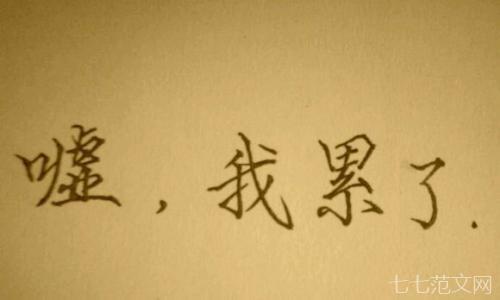 嘘，我累了.
七七范文网